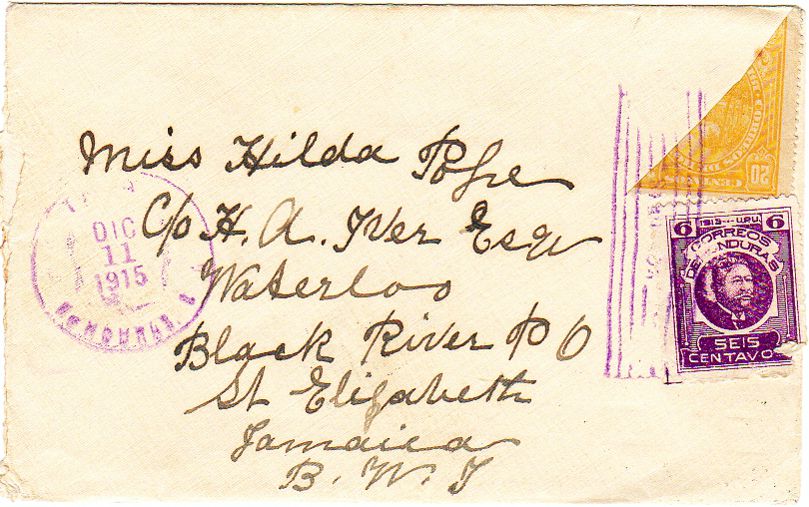 Miss Hilda Pope
C/o H. A. Iver Esqr
Waterloo
Black River P O
St Elizabeth
Jamaica
B. W. I
DIC
11
1915
HONDURAS
20
6 1913 - U.P.U. 6
CORREOS
DE HONDURAS
SEIS
CENTAVO